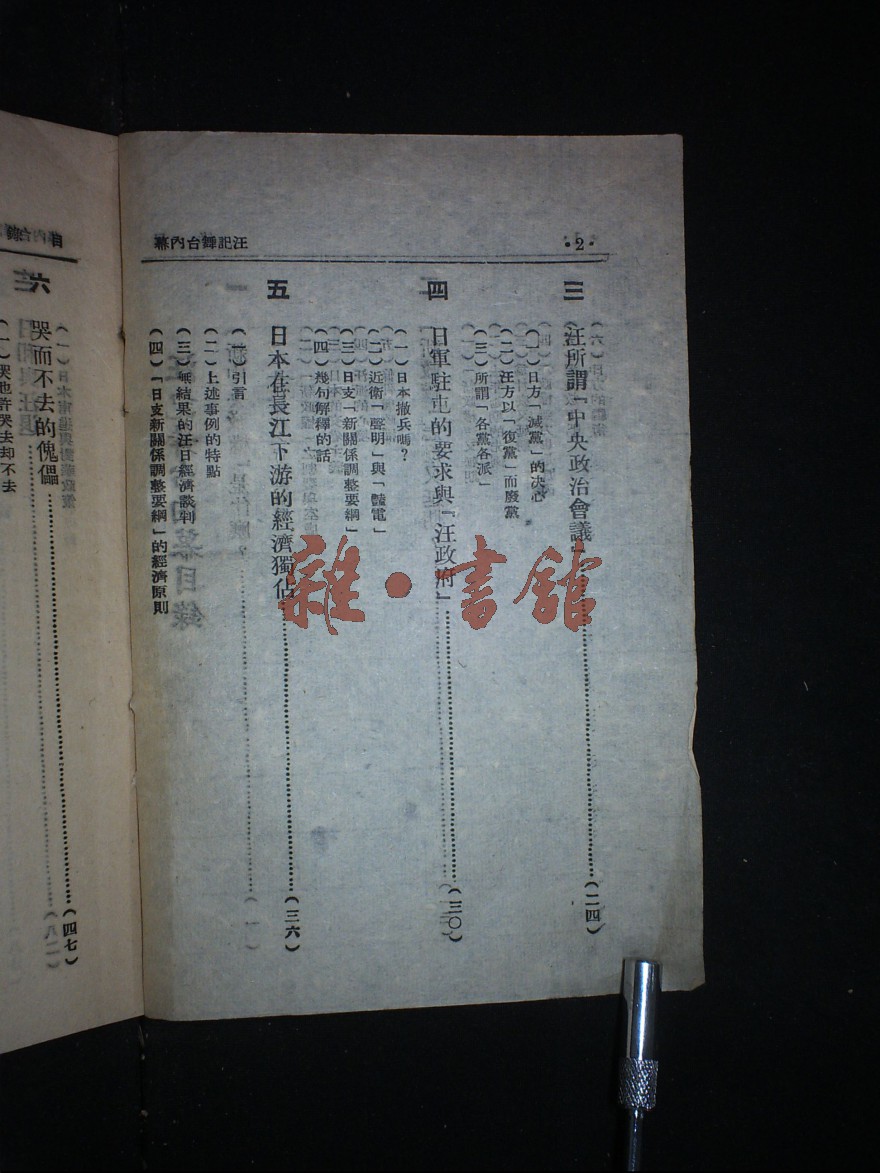 ·2·
汪記舞台內幕
三 汪所謂「中央政治會議」……(二四)
(一)日方「滅黨」的决心
(二)汪方以「復黨」而廢黨
(三)所謂「各黨各派」
四 日軍駐屯的要求與「汪政府」……(三〇)
(一)日本撤兵嗎?
(二)近衛「聲明」與「豔電」
(三)日支「新關係調整要綱」
(四)幾句解釋的話
五 日本在長江下游的經濟獨佔……(三六)
(一)引言
(二)上述事例的特點
(三)無結果的汪日經濟談判
(四)「日支新關係調整要綱」的經濟原則
六 哭而不去的傀儡……(四七)
(一)哭也許哭去却不去
雜·書館